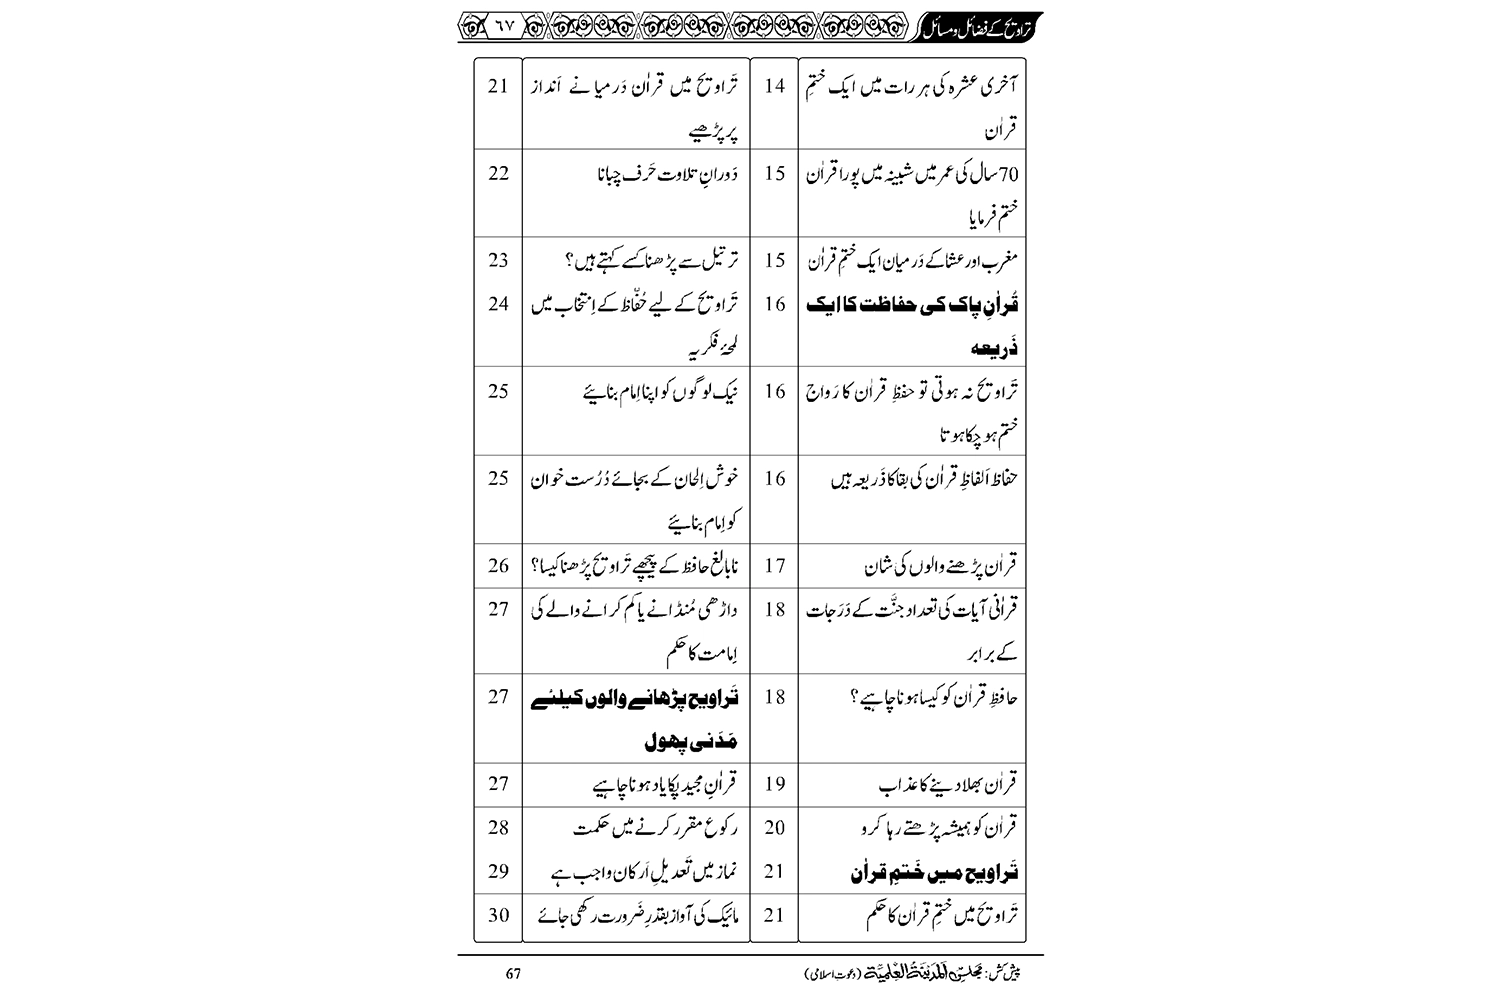 تراویح کے فضائل و مسائل ٦٧
آخری عشرہ کی ہر رات میں ایک ختمِ 14
قراٰن
70 سال کی عمر میں شبینہ میں پورا قراٰن 15
ختم فرمایا
مغرب اور عشا کے دَرمیان ایک ختمِ قراٰن 15
قُراٰنِ پاک کی حفاظت کا ایک 16
ذَریعہ
تَراویح نہ ہوتی تو حفظِ قراٰن کا رَواج 16
ختم ہو چکا ہوتا
حفاظ اَلفاظِ قراٰن کی بقا کا ذَریعہ ہیں 16
قراٰن پڑھنے والوں کی شان 17
قراٰنی آیات کی تعداد جنَّت کے دَرَجات 18
کے برابر
حافظِ قراٰن کو کیسا ہونا چاہیے؟ 18
قراٰن بھلا دینے کا عذاب 19
قراٰن کو ہمیشہ پڑھتے رہا کرو 20
تَراویح میں خَتمِ قراٰن 21
تَراویح میں ختمِ قراٰن کا حکم 21
تَراویح میں قراٰن دَرمیانے اَنداز 21
پر پڑھیے
دَورانِ تلاوت حَرف چبانا 22
ترتیل سے پڑھنا کسے کہتے ہیں؟ 23
تَراویح کے لیے حُفّاظ کے اِنتخاب میں 24
لمحۂ فکریہ
نیک لوگوں کو اپنا اِمام بنائیے 25
خوش اِلحان کے بجائے دُرُست خوان 25
کو اِمام بنائیے
نابالغ حافظ کے پیچھے تَراویح پڑھنا کیسا؟ 26
داڑھی مُنڈانے یا کم کرانے والے کی 27
اِمامت کا حکم
تَراویح پڑھانے والوں کیلئے 27
مَدَنی پھول
قراٰنِ مجید پکا یاد ہونا چاہیے 27
رکوع مقرر کرنے میں حکمت 28
نماز میں تَعدیلِ اَرکان واجب ہے 29
مائیک کی آواز بقدرِ ضَرورت رکھی جائے 30
پیش کش: مجلس المدینۃ العلمیۃ (دعوتِ اسلامی) 67